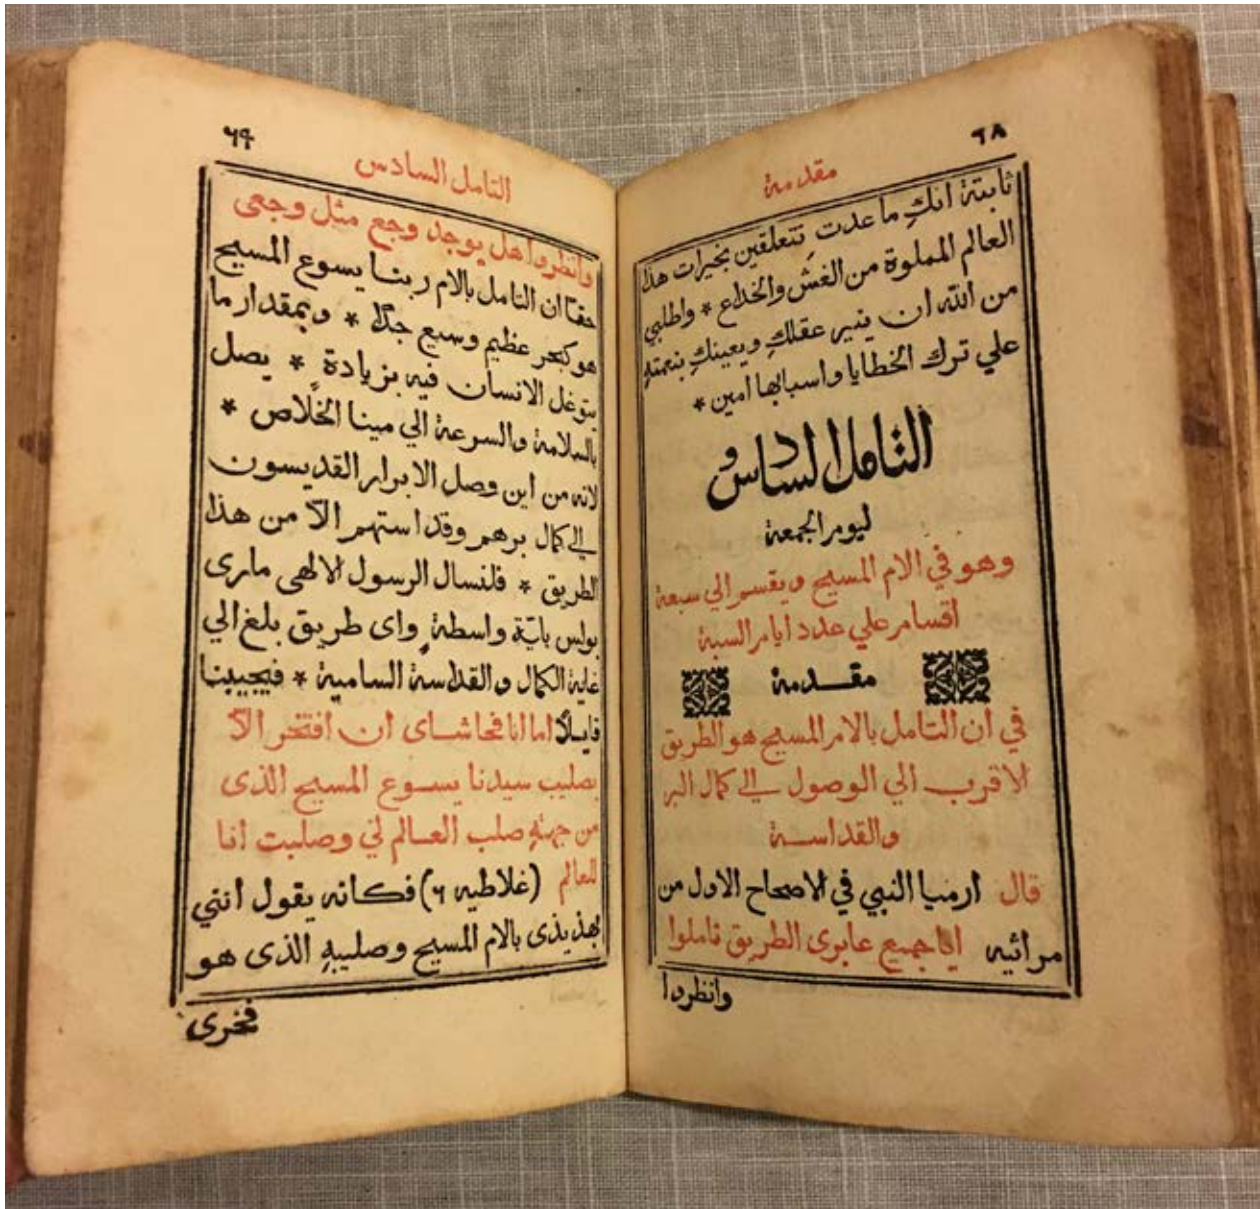 ٦٨
مقدمة
ثابتة انكِ ما عدتِ تتعلقين بخيرات هذا
العالم المملوة من الغش والخداع * واطلبي
من الله ان ينير عقلكِ ويعينكِ بنعمتهِ
علي ترك الخطايا واسبابها امين *
التامل السادس
ليوم الجمعة
وهو في الام المسيح ويقسم الي سبعة
اقسام علي عدد ايام السبة
مقدمة
في ان التامل بالام المسيح هو الطريق
الاقرب الي الوصول الي كمال البر
والقداسة
قال ارميا النبي في الاصحاح الاول من
مراثيه اياجميع عابرى الطريق تاملوا
وانظروا
٦٩
التامل السادس
وانظروا هل يوجد وجع مثل وجعى
حقا ان التامل بالام ربنا يسوع المسيح
هو كبحر عظيم وسيع جدًا * وبمقدار ما
يتوغل الانسان فيه بزيادةٍ * يصل
بالسلامة والسرعة الي مينا الخلاص *
لانه من اين وصل الابرار القديسون
الي كمال برهم وقداستهم الّا من هذا
الطريق * فلنسال الرسول الالهى مارى
بولس بايّة واسطةٍ واى طريق بلغ الي
غاية الكمال والقداسة السامية * فيجيبنا
قايلًا اما انا فحاشاى ان افتخر الّا
بصليب سيدنا يسوع المسيح الذى
من جهتهِ صلب العالم لي وصلبت انا
للعالم (غلاطيه ٦) فكانه يقول انني
بهذيذى بالام المسيح وصليبهِ الذى هو
فخرى